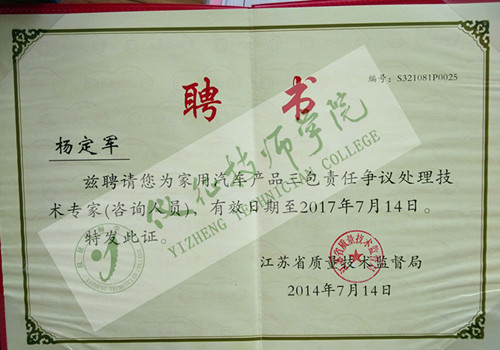 编号：S321081P0025
聘 书
杨定军
兹聘请您为家用汽车产品三包责任争议处理技
术专家(咨询人员)，有效日期至2017年7月14日。
特发此证。
江苏省质量技术监督局
2014年7月14日
仪征技师学院
YIZHENG TECHNICIAN COLLEGE